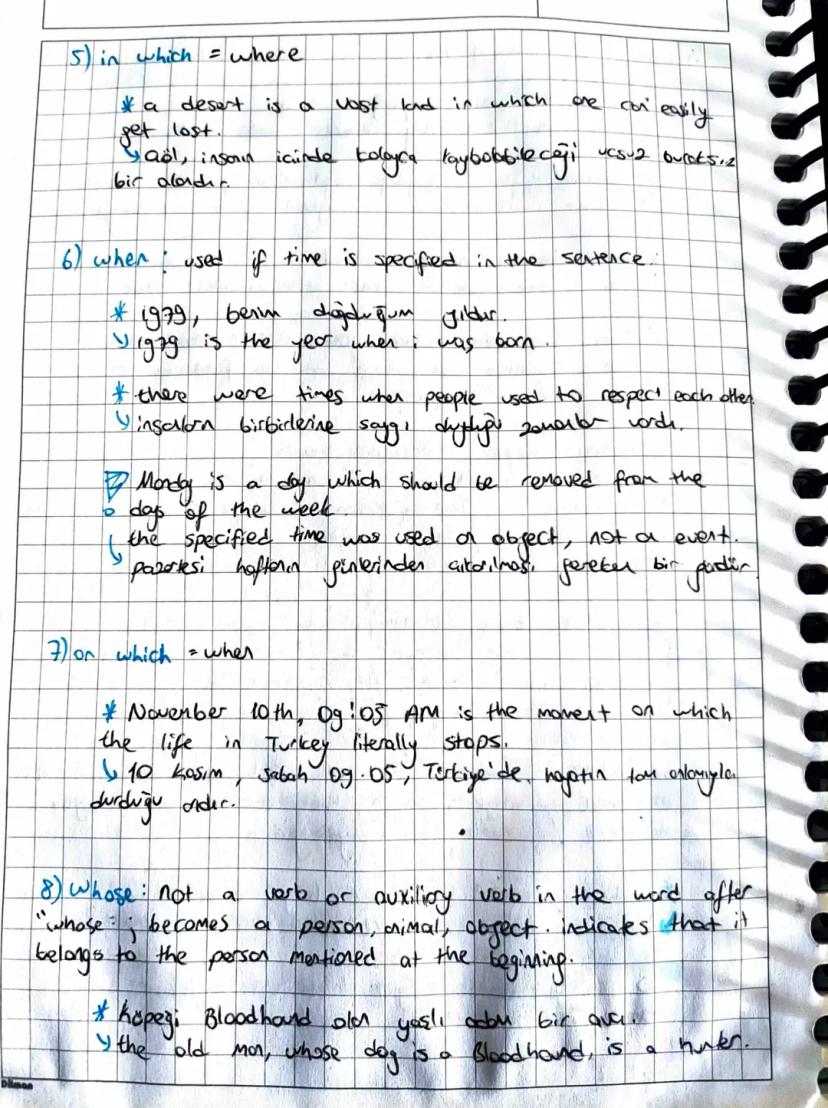 5) in which = where
* a desert is a vast land in which one can easily
get lost.
↳ çöl, insanın içinde kolayca kaybolabileceği uçsuz bucaksız
bir alandır.
6) when : used if time is specified in the sentence.
* 1979, benim doğduğum yıldır.
↳ 1979 is the year when i was born.
* there were times when people used to respect each other.
↳ insanların birbirlerine saygı duyduğu zamanlar vardı.
Monday is a day which should be removed from the
days of the week.
the specified time was used a object, not a event.
↳ pazartesi haftanın günlerinden çıkarılması gereken bir gündür.
7) on which = when
* November 10th, 09:05 AM is the moment on which
the life in Turkey literally stops.
↳ 10 Kasım, sabah 09.05, Türkiye'de hayatın tam anlamıyla
durduğu andır.
8) whose : not a verb or auxiliary verb in the word after
"whose" ; becomes a person, animal, object. indicates that it
belongs to the person mentioned at the beginning.
* köpeği Bloodhound olan yaşlı adam bir avcı.
↳ the old man, whose dog is a Bloodhound, is a hunter.